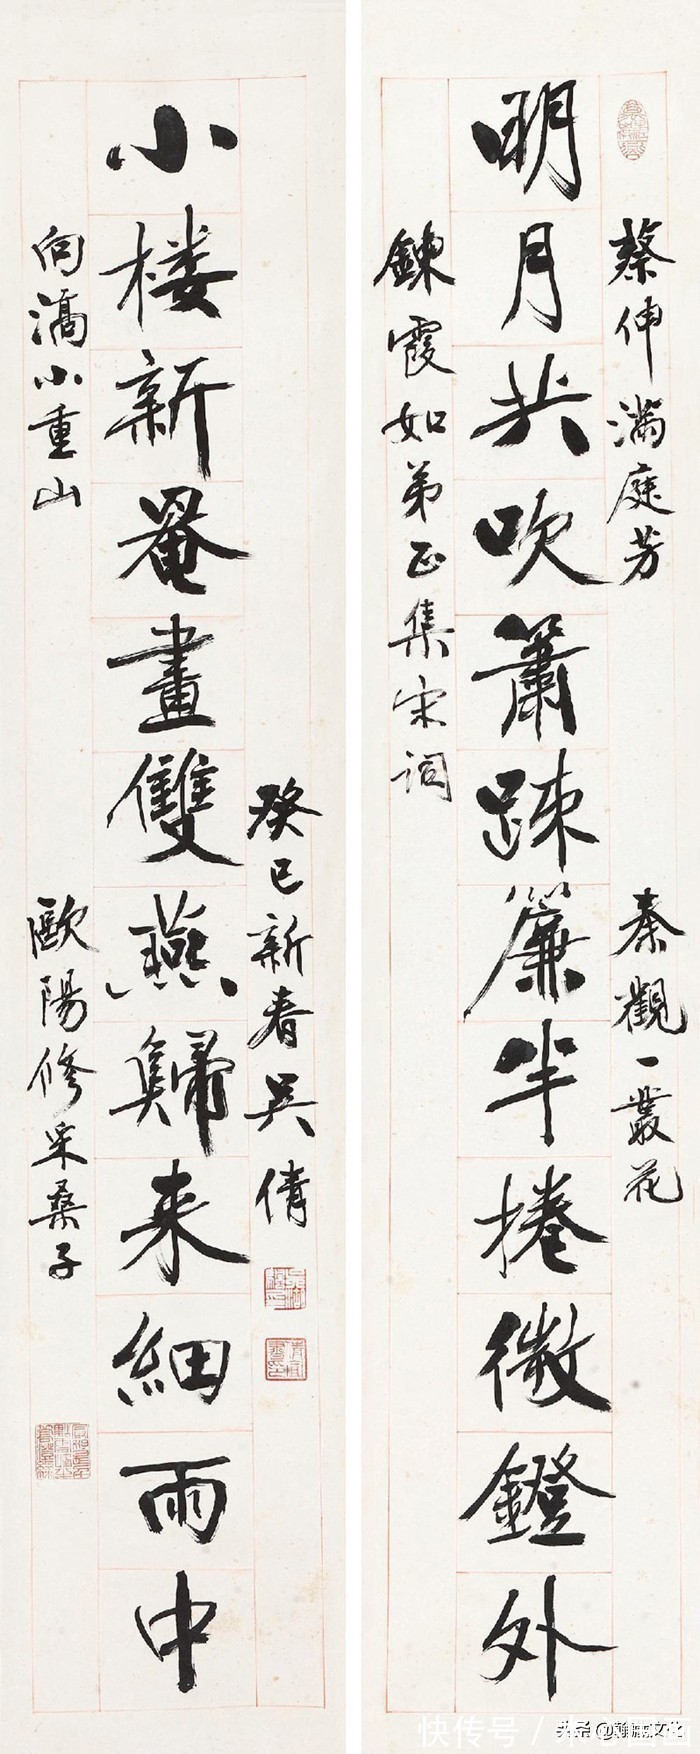 蔡伸滿庭芳
秦觀一叢花
明月共吹簫疎簾半捲微鐙外
鍊霞如弟正集宋詞
癸巳新春吳倩
小楼新罨畫雙燕歸来細雨中
向滈小重山
歐陽修采桑子
快传号 /